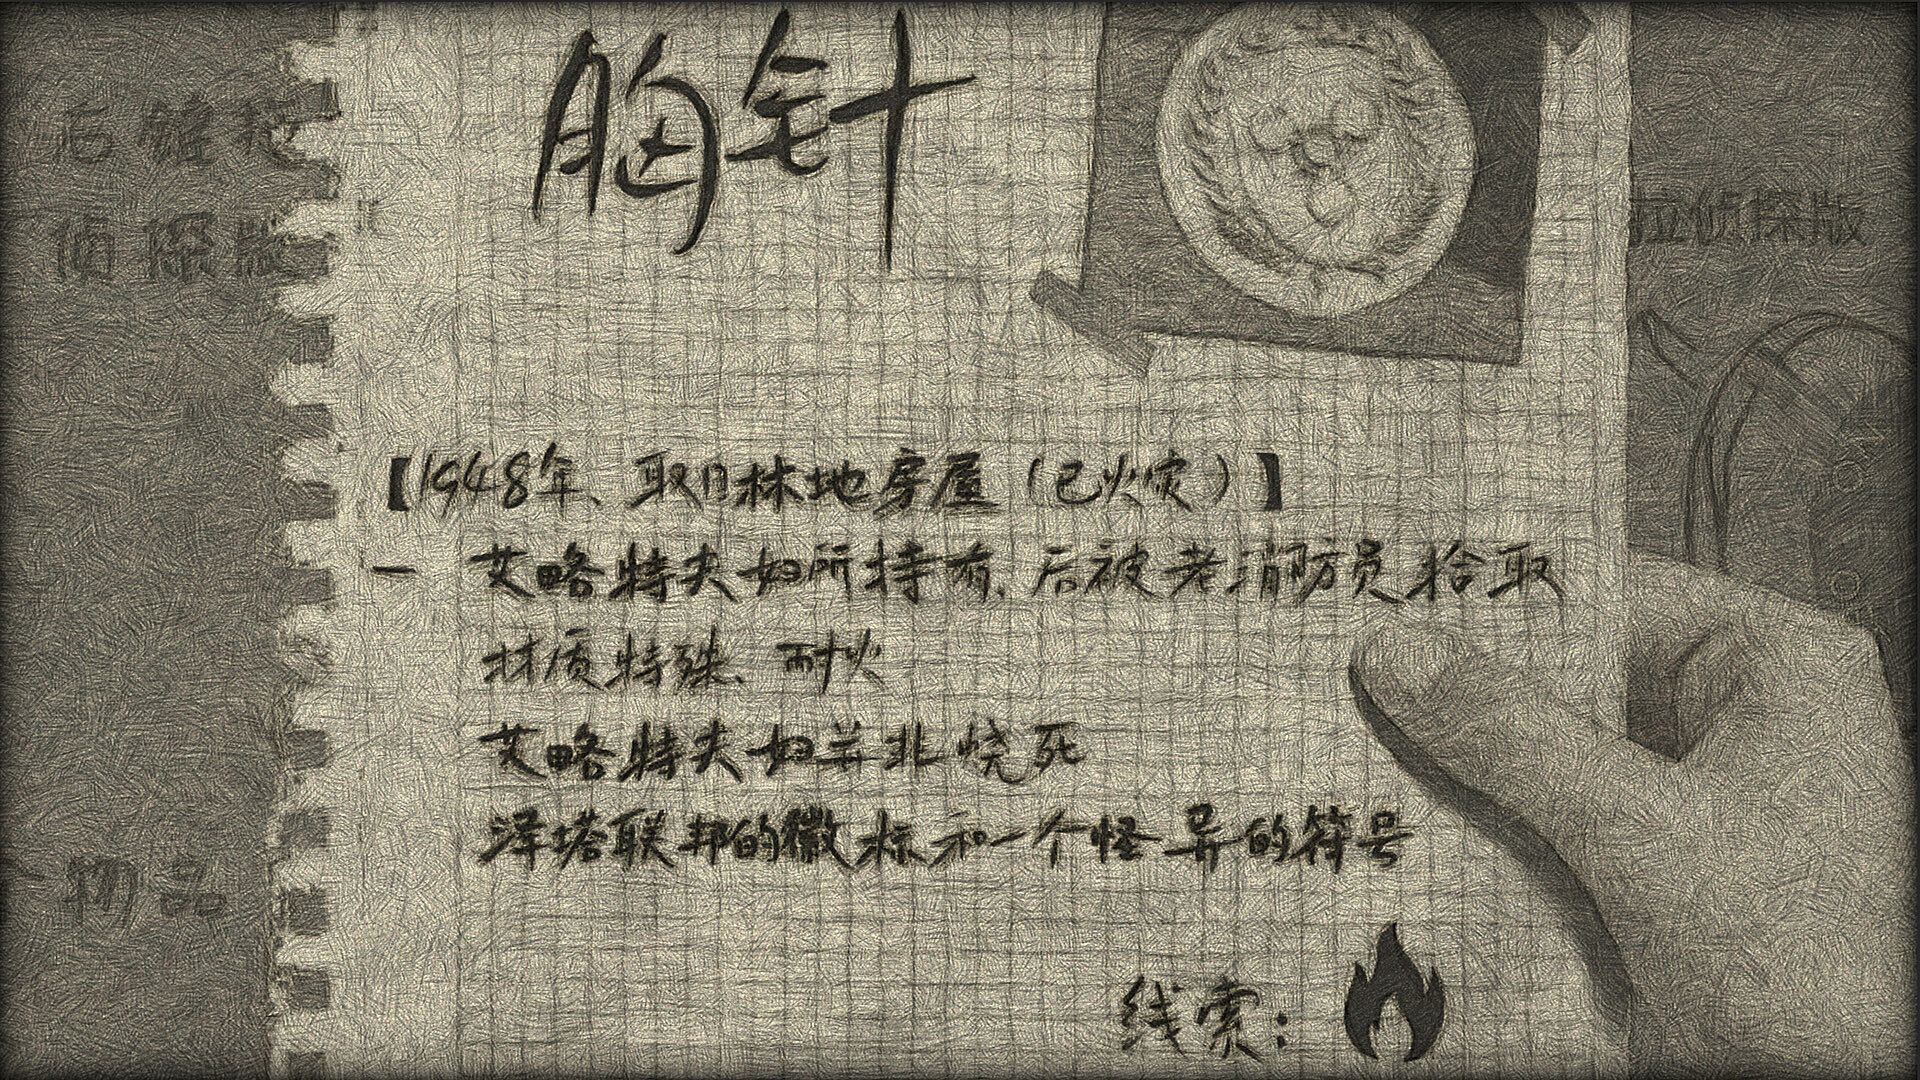 胸针
后维拉
侦探版
拉侦探版
【1948年、取日林地房屋（已火灾）】
- 艾略特夫妇所持有、后被老消防员拾取
材质特殊、耐火
艾略特夫妇并非烧死
泽塔联邦的徽标和一个怪异的符号
物品
线索：